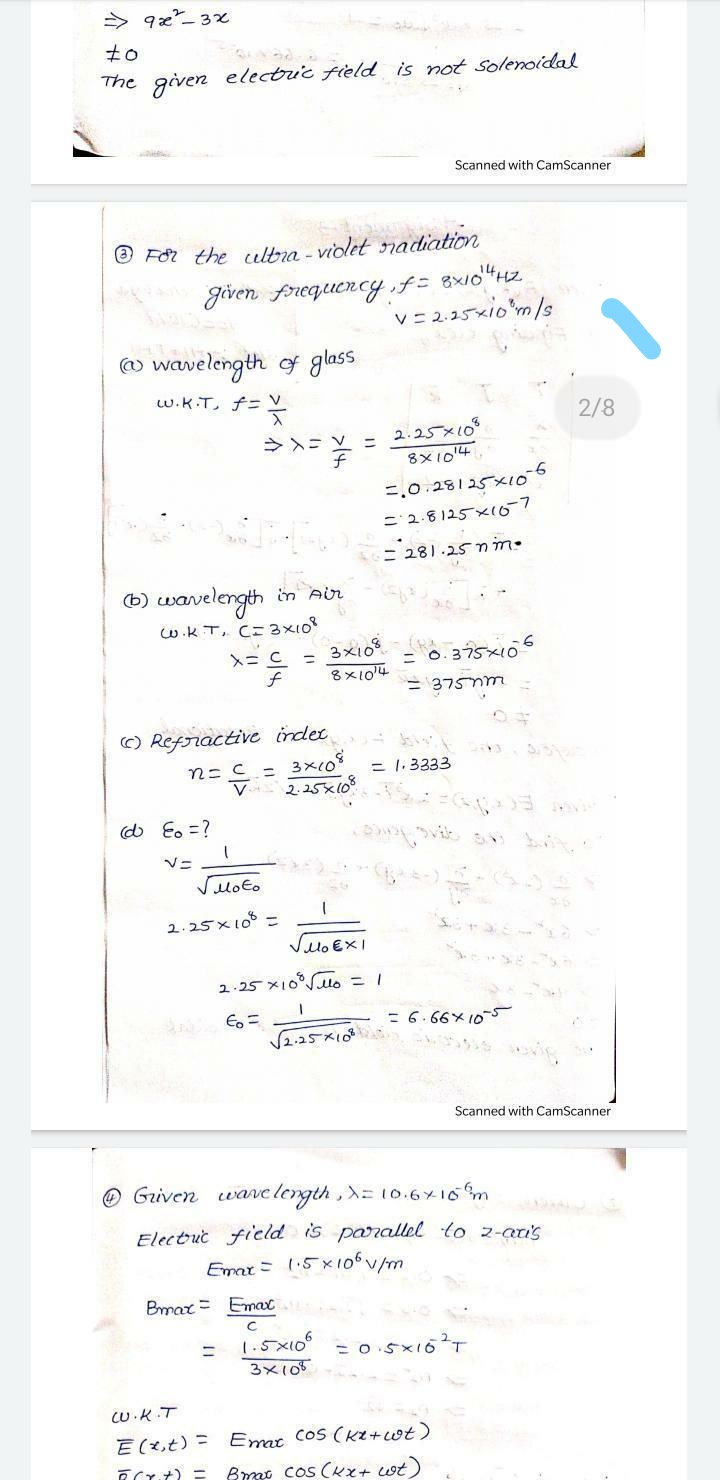 ⇒ 9x²-3x
≠0
The given electric field is not solenoidal
Scanned with CamScanner
③ For the ultra-violet radiation
given frequency, f= 8×10¹⁴Hz
v = 2.25×10⁸m/s
(a) wavelength of glass
2/8
W.K.T, f= v/λ
⇒ λ= v/f = 2.25×10⁸/8×10¹⁴
= 0.28125×10⁻⁶
= 2.8125×10⁻⁷
= 281.25 nm.
(b) wavelength in Air
W.K.T, C=3×10⁸
λ= c/f = 3×10⁸/8×10¹⁴ = 0.375×10⁻⁶
= 375nm
(c) Refractive index
n= c/v = 3×10⁸/2.25×10⁸ = 1.3333
(d) ε₀=?
v= 1/√μ₀ε₀
2.25×10⁸ = 1/√μ₀ε×1
2.25×10⁸√μ₀ = 1
ε₀= 1/√2.25×10⁸ = 6.66×10⁻⁵
Scanned with CamScanner
④ Given wavelength, λ= 10.6×10⁻⁶m
Electric field is parallel to z-axis
Emax = 1.5×10⁶v/m
Bmax = Emax/c
= 1.5×10⁶/3×10⁸ = 0.5×10⁻²T
W.K.T
E(x,t) = Emax cos(kx+ωt)
B(x,t) = Bmax cos(kx+ωt)